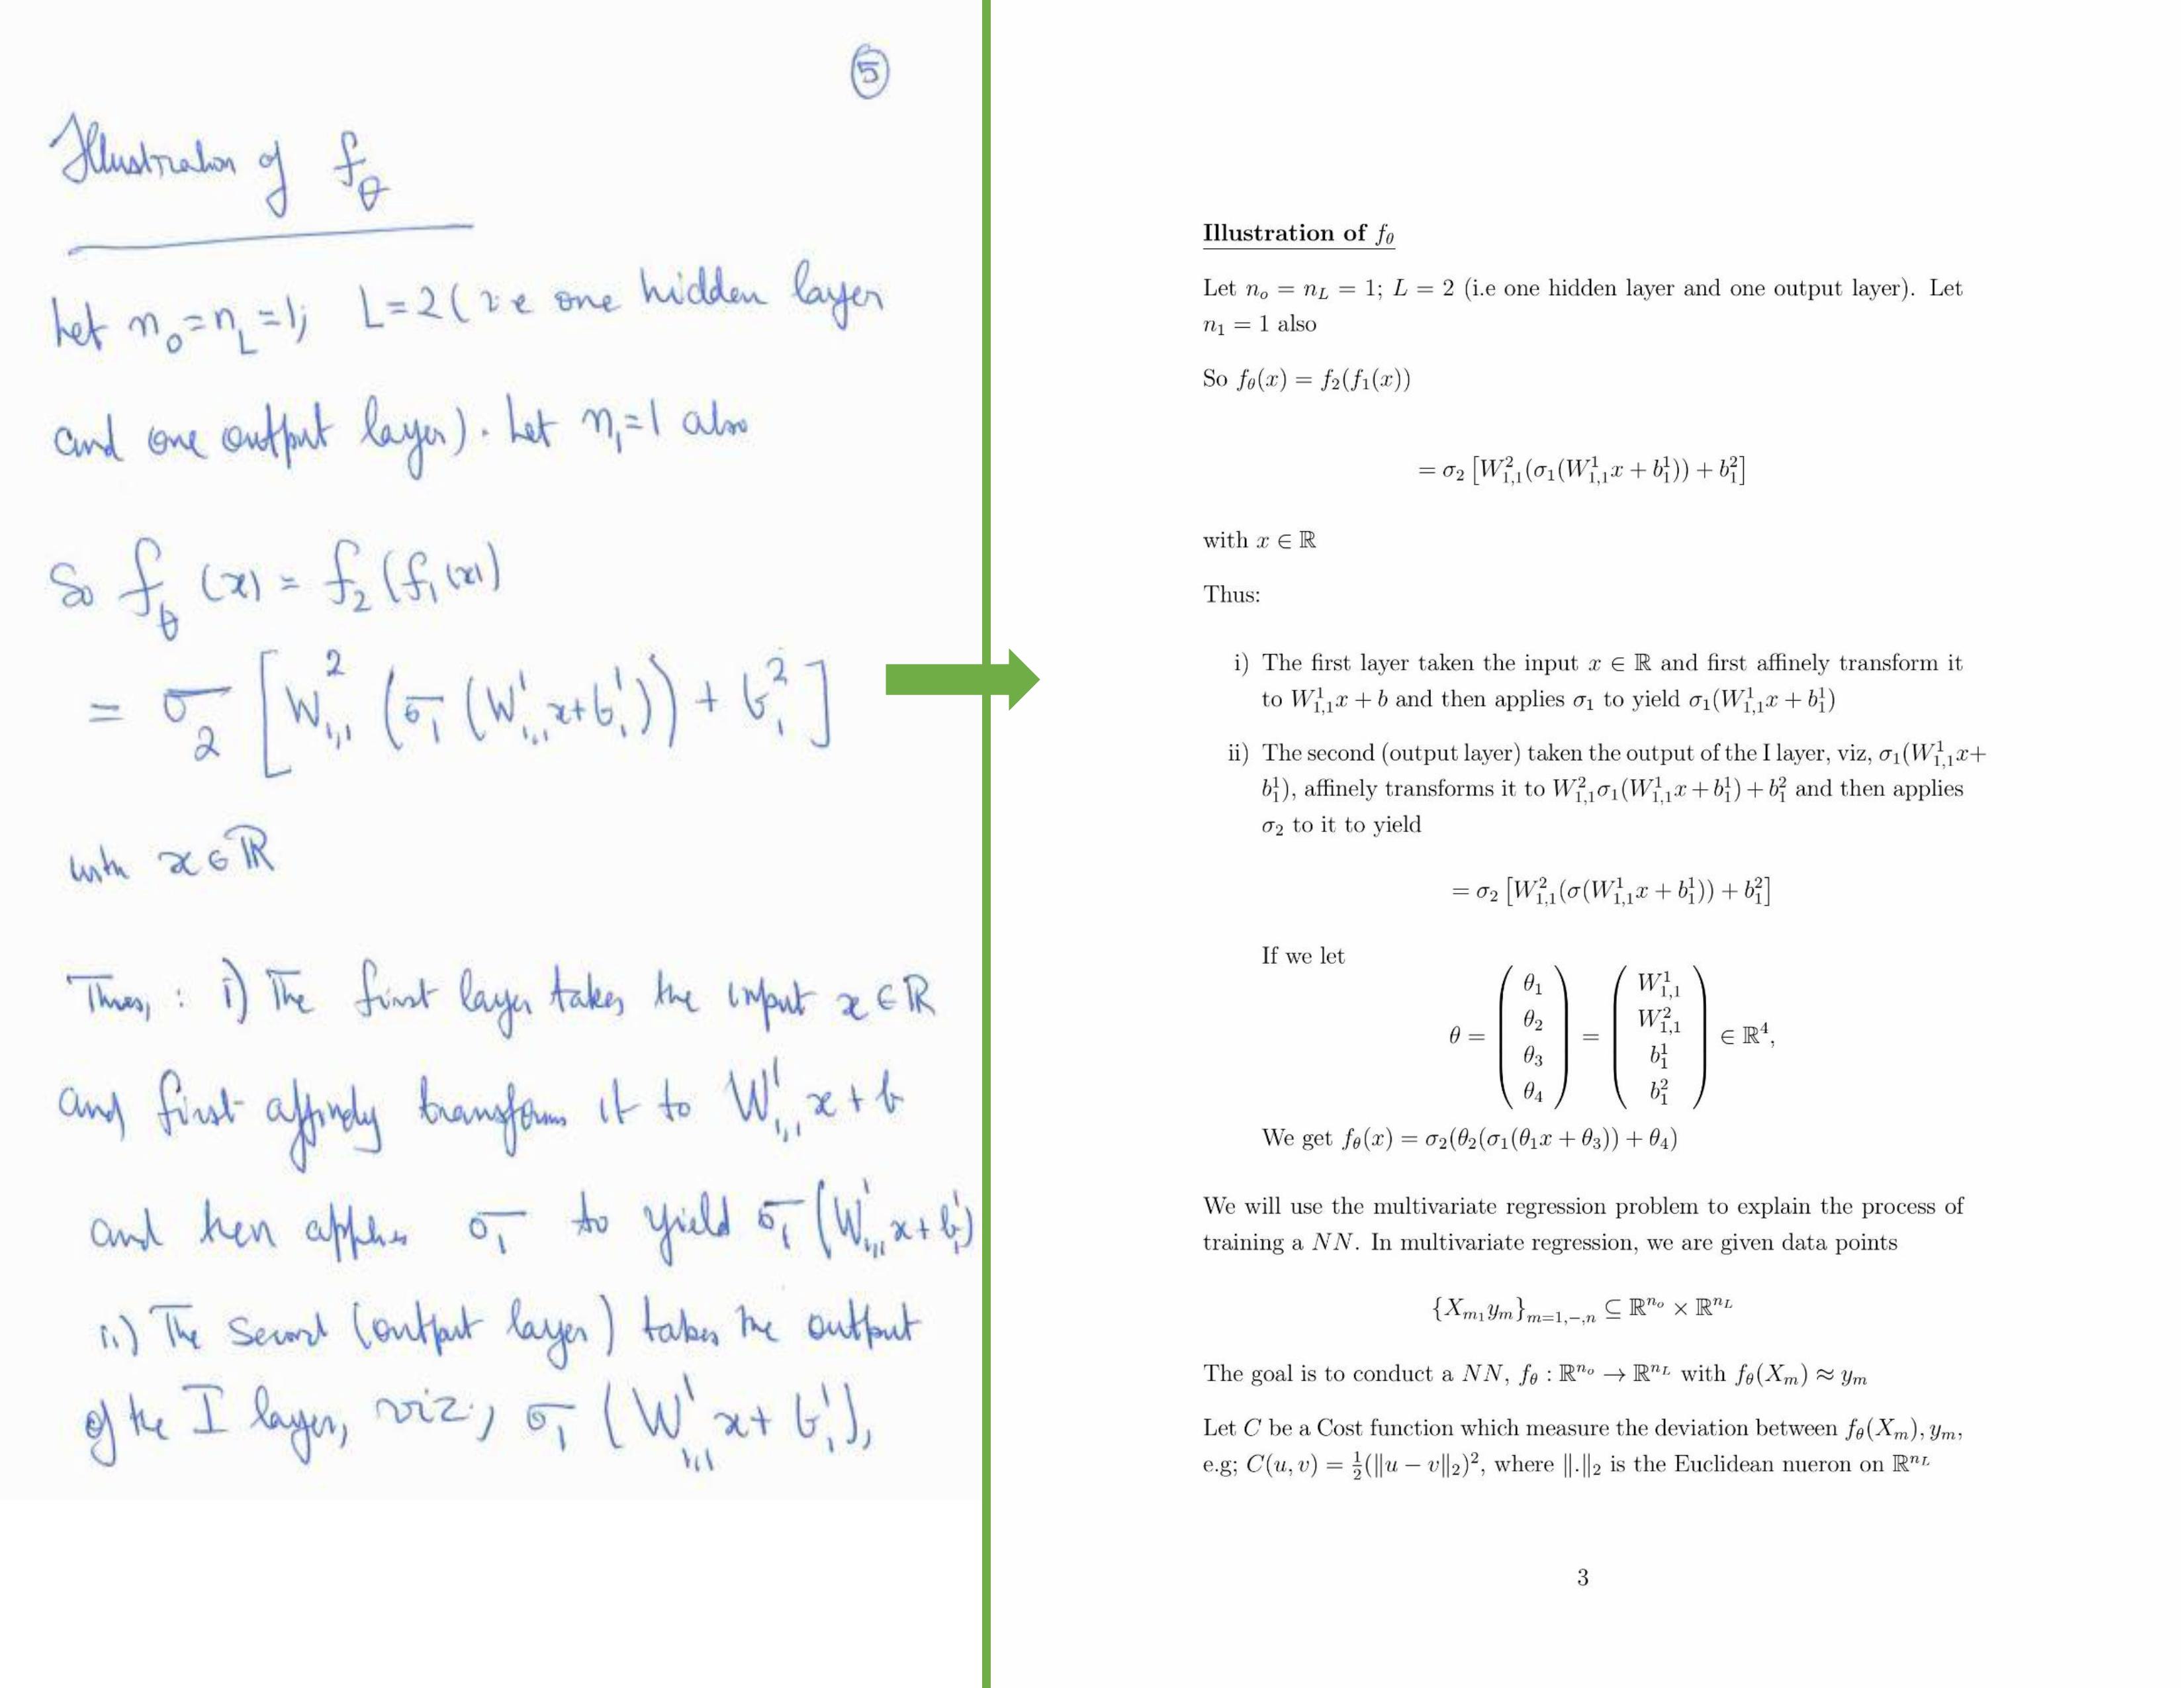 ⑤
Illustration of f_θ
Let n_0 = n_L = 1; L = 2 (i.e one hidden layer
and one output layer). Let n_1 = 1 also
So f_θ (x) = f_2 (f_1(x))
= σ_2 [W^2_{1,1} (σ_1 (W^1_{1,1} x + b^1_1)) + b^2_1]
with x ∈ ℝ
Thus, : i) The first layer takes the input x ∈ ℝ
and first affinely transforms it to W^1_{1,1} x + b
and then applies σ_1 to yield σ_1 (W^1_{1,1} x + b^1_1)
ii) The second (output layer) takes the output
of the I layer, viz, σ_1 (W^1_{1,1} x + b^1_1),
Illustration of f_θ
Let n_o = n_L = 1; L = 2 (i.e one hidden layer and one output layer). Let
n_1 = 1 also
So f_θ(x) = f_2(f_1(x))
= σ_2 [W^2_{1,1}(σ_1(W^1_{1,1}x + b^1_1)) + b^2_1]
with x ∈ ℝ
Thus:
i) The first layer taken the input x ∈ ℝ and first affinely transform it
to W^1_{1,1}x + b and then applies σ_1 to yield σ_1(W^1_{1,1}x + b^1_1)
ii) The second (output layer) taken the output of the I layer, viz, σ_1(W^1_{1,1}x+
b^1_1), affinely transforms it to W^2_{1,1}σ_1(W^1_{1,1}x + b^1_1) + b^2_1 and then applies
σ_2 to it to yield
= σ_2 [W^2_{1,1}(σ(W^1_{1,1}x + b^1_1)) + b^2_1]
If we let
θ = (θ_1 θ_2 θ_3 θ_4) = (W^1_{1,1} W^2_{1,1} b^1_1 b^2_1) ∈ ℝ^4,
We get f_θ(x) = σ_2(θ_2(σ_1(θ_1x + θ_3)) + θ_4)
We will use the multivariate regression problem to explain the process of
training a NN. In multivariate regression, we are given data points
{X_{m_1}y_m}_{m=1,−,n} ⊆ ℝ^{n_o} × ℝ^{n_L}
The goal is to conduct a NN, f_θ : ℝ^{n_o} → ℝ^{n_L} with f_θ(X_m) ≈ y_m
Let C be a Cost function which measure the deviation between f_θ(X_m), y_m,
e.g; C(u, v) = ½(‖u − v‖_2)^2, where ‖.‖_2 is the Euclidean nueron on ℝ^{n_L}
3